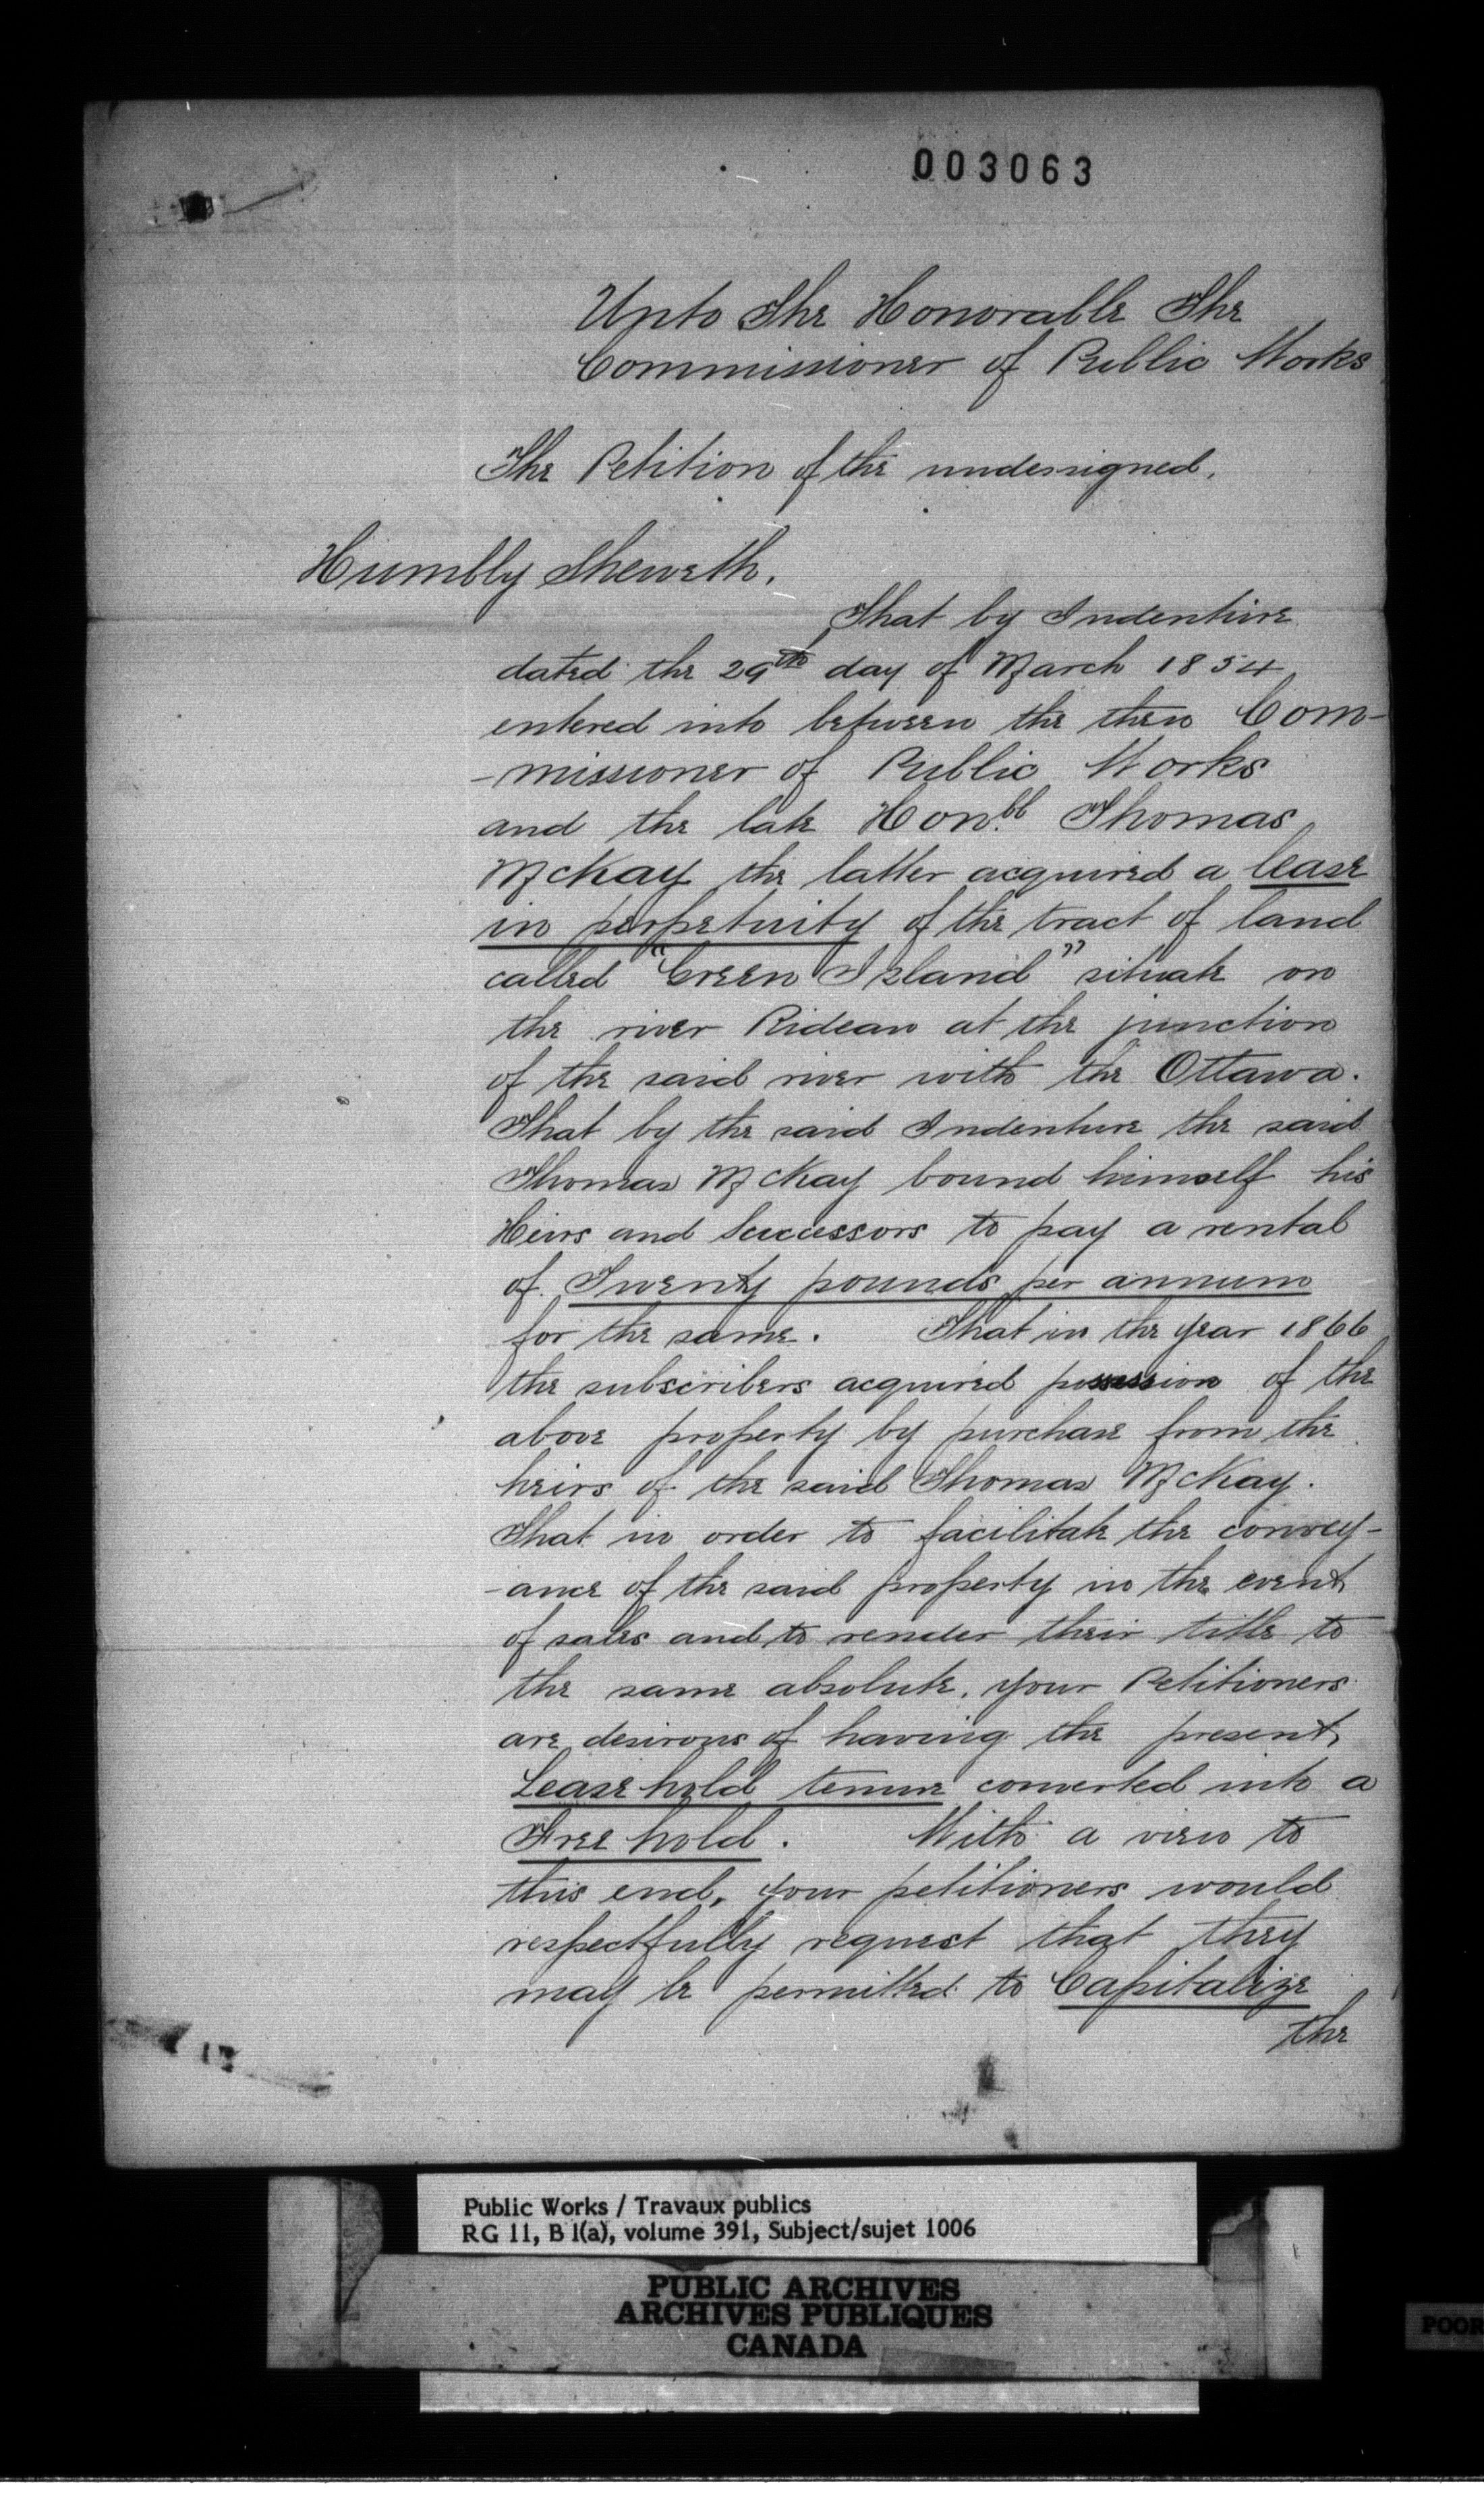 003063
Unto The Honorable The
Commissioner of Public Works
The Petition of the undersigned.
Humbly Sheweth.
That by Indenture
dated the 29th day of March 1854
entered into between the then Com-
-missioner of Public Works
and the late Honble Thomas
McKay the latter acquired a lease
in perpetuity of the tract of land
called "Green Island" situate on
the river Rideau at the junction
of the said river with the Ottawa.
That by the said Indenture the said
Thomas McKay bound himself his
Heirs and Successors to pay a rental
of Twenty pounds per annum
for the same. That in the year 1866
the subscribers acquired possession of the
above property by purchase from the
heirs of the said Thomas McKay.
That in order to facilitate the convey-
-ance of the said property in the event
of sales and to render their title to
the same absolute, your Petitioners
are desirous of having the present
Leasehold tenure converted into a
Free hold. With a view to
this end, your petitioners would
respectfully request that they
may be permitted to Capitalize
the
Public Works / Travaux publics
RG 11, B 1(a), volume 391, Subject/sujet 1006
PUBLIC ARCHIVES
ARCHIVES PUBLIQUES
CANADA
POOR